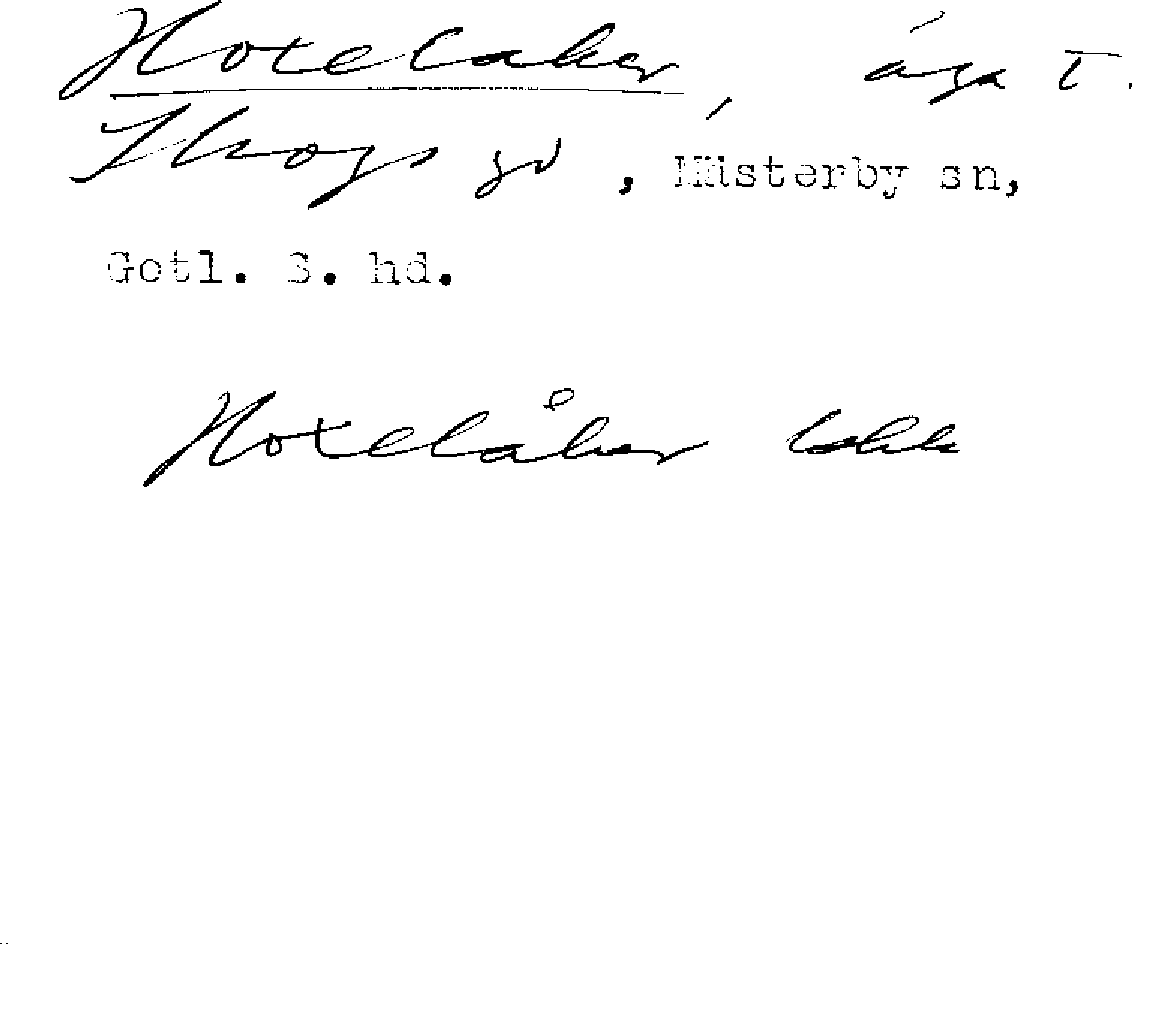 Hotelaker, äga t.
Skogs gd, Mästerby sn,
Gotl. S. hd.
Hotelåker